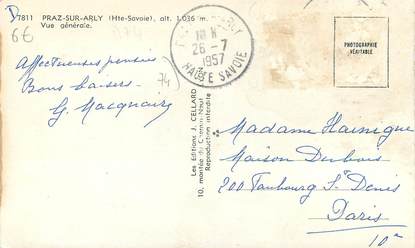 D7811 PRAZ-SUR-ARLY (Hte-Savoie), alt. 1.036 m.
Vue générale.
6€
74
Affectueuses pensées
Bons baisers
G.
26-7
1957
HAUTE SAVOIE
PHOTOGRAPHIE
VÉRITABLE
Les Editions J. CELLARD
10, montée du Chemin-Neuf
Reproduction interdite
Madame
Maison Dubois
200 Faubourg St Denis
Paris
10e